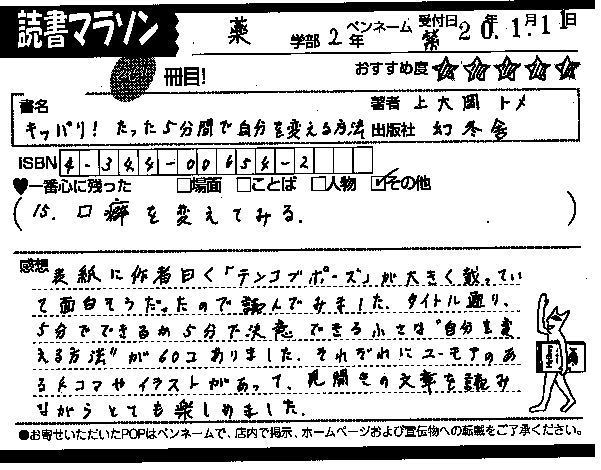 読書マラソン
薬 学部 2年 ペンネーム 受付日 第20年.1月11日
冊目! おすすめ度 ☆☆☆☆☆
書名 著者 上大岡 トメ
キッパリ! たった5分間で自分を変える方法 出版社 幻冬舎
ISBN 4-344-00654-2
♥一番心に残った □場面 □ことば □人物 ☑その他
(15. 口癖を変えてみる. )
感想 表紙に作者曰く「テンコブポーズ」が大きく載ってい
て面白そうだったので読んでみました. タイトル通り、
5分でできるめ5分で決意できる小さな"自分を変
える方法"が60コありました. それぞれにユーモアのあ
る4コマやイラストがあって、見開きの文章を読み
ながらとても楽しめました.
●お寄せいただいたPOPはペンネームで、店内で掲示、ホームページおよび宣伝物への転載をご了承ください。